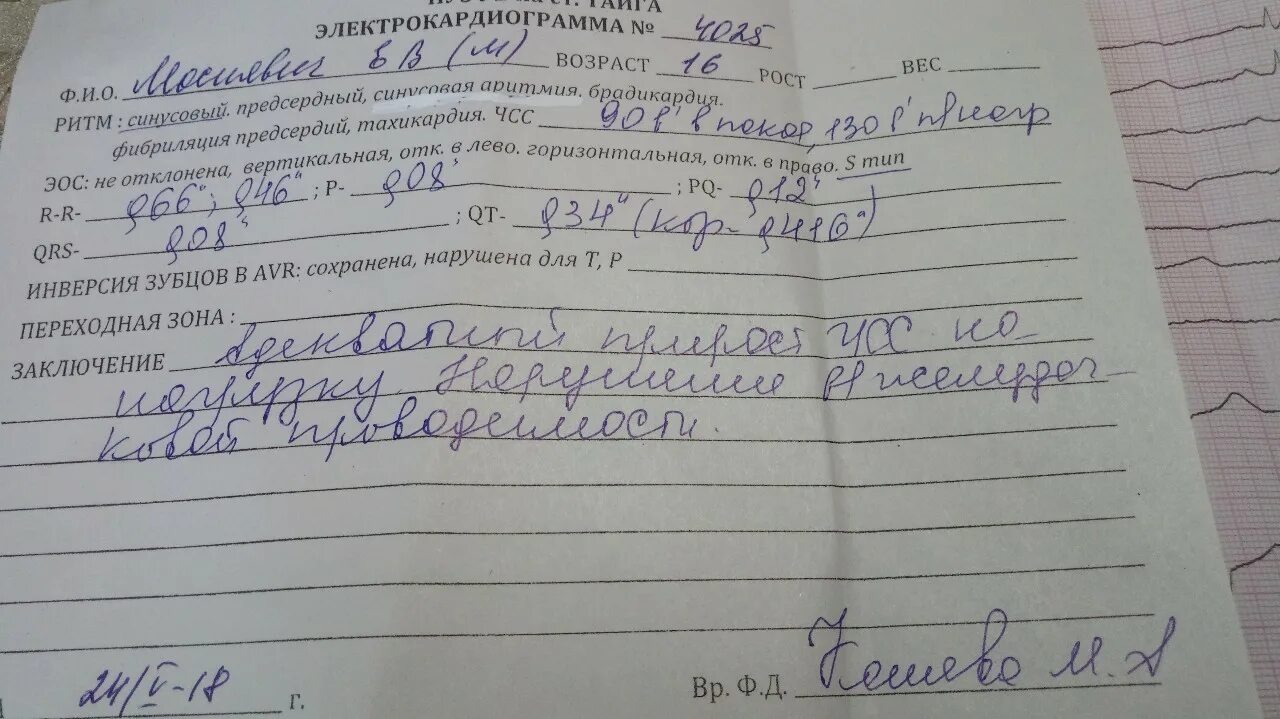 на ст. ТАЙГА
ЭЛЕКТРОКАРДИОГРАММА № 4025
Ф.И.О. Мосиявич Е В (м) ВОЗРАСТ 16 РОСТ ВЕС
РИТМ : синусовый. предсердный, синусовая аритмия. брадикардия.
фибриляция предсердий, тахикардия. ЧСС 90 в' в покое, 130 в' при нагр
ЭОС: не отклонена, вертикальная, отк. в лево. горизонтальная, отк. в право. S тип
R-R- 0,66"; 0,46" ; P- 0,08" ; PQ- 0,12"
QRS- 0,08" ; QT- 0,34" (кор- 0,416")
ИНВЕРСИЯ ЗУБЦОВ В AVR: сохранена, нарушена для T, P
ПЕРЕХОДНАЯ ЗОНА :
ЗАКЛЮЧЕНИЕ Адекватный прирост ЧСС на
нагрузку. Нарушение в/желудоч-
ковой проводимости.
24/V-18 г.
Вр. Ф.Д. М. А